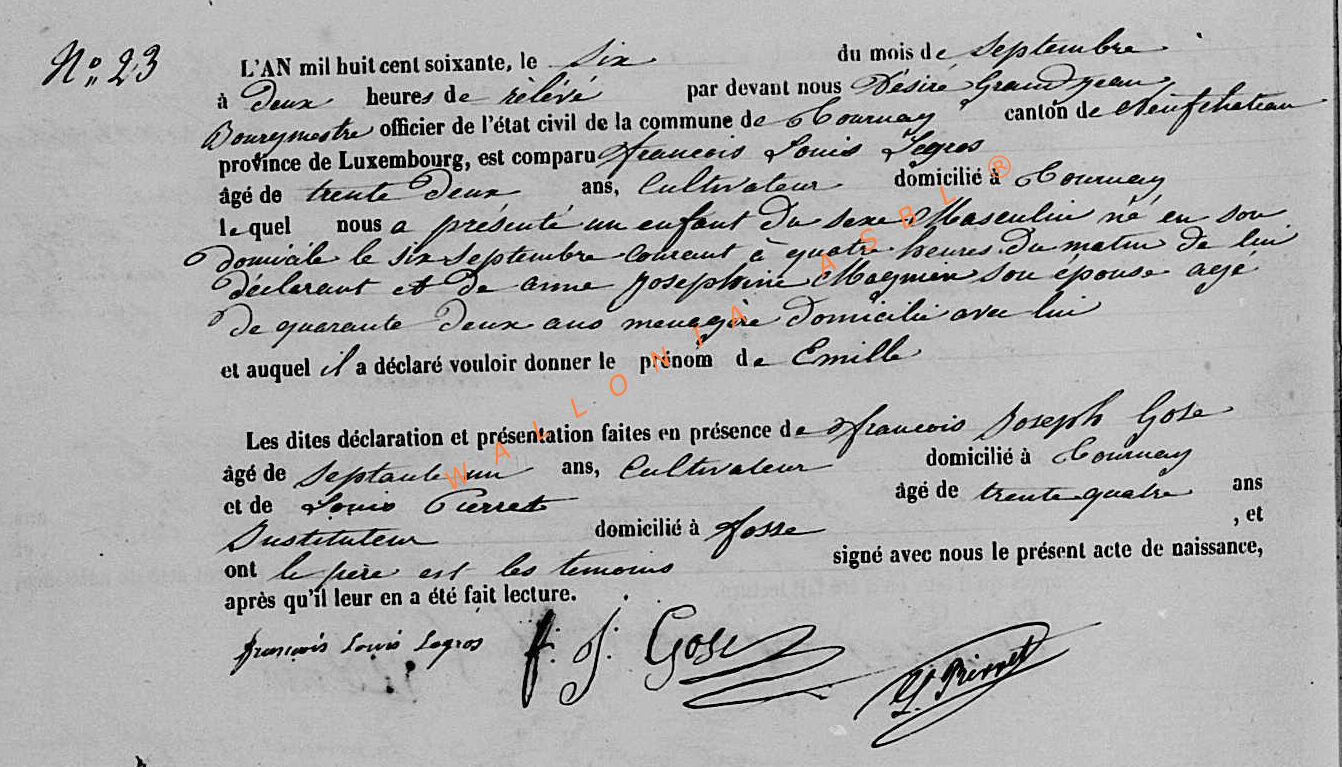 N° 23
L'AN mil huit cent soixante, le six du mois de Septembre
à deux heures de rélévé par devant nous Désiré Grandjean
Bourgmestre officier de l'état civil de la commune de Tournay canton de Neufchateau
province de Luxembourg, est comparu françois Louis Legros
âgé de trente deux ans, Cultivateur domicilié à Tournay
le quel nous a présenté un enfant du sexe Masculin né en son
domicile le six septembre courant à quatre heures du matin de lui
déclarant et de anne josephine son épouse agé
de quarante deux ans menagère domicilié avec lui
et auquel il a déclaré vouloir donner le prénom de Emille
Les dites déclaration et présentation faites en présence de françois Joseph Gose
âgé de septante un ans, Cultivateur domicilié à Tournay
et de Louis Pierret âgé de trente quatre ans
Instituteur domicilié à fosse , et
ont le père est les temoins signé avec nous le présent acte de naissance,
après qu'il leur en a été fait lecture.
françois Louis Legros f. J. Gose L. Pierret
WALLONIA ASBL ®